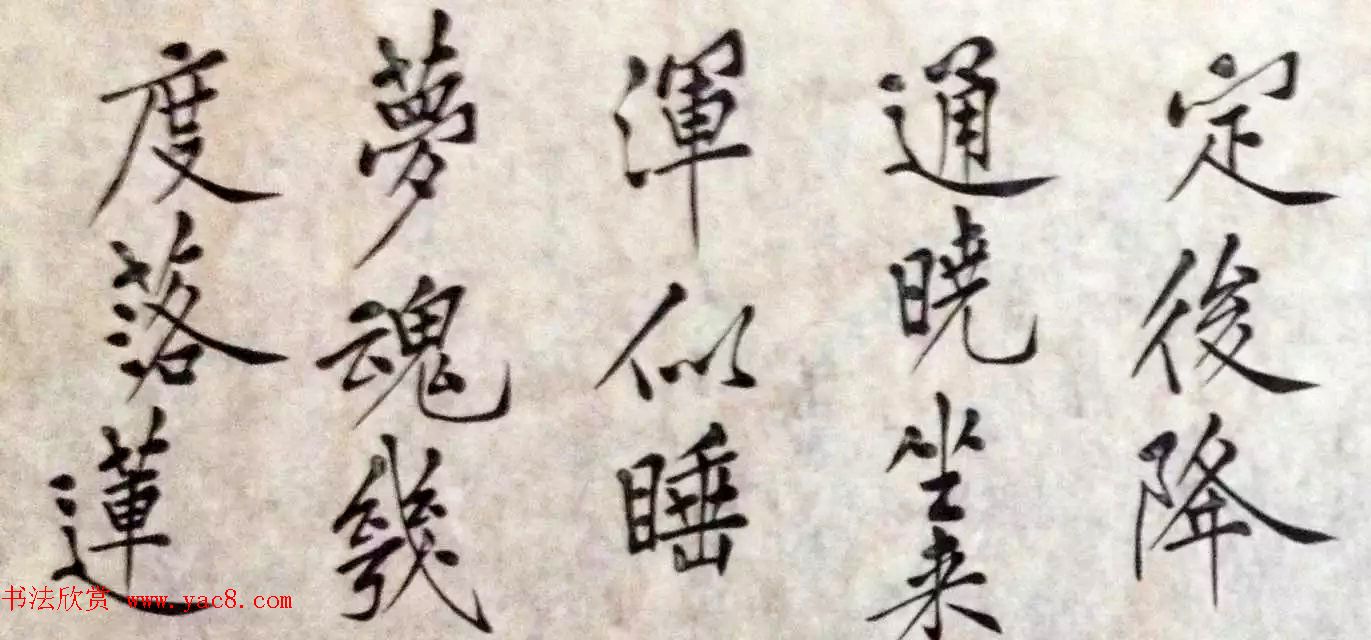 定後降
通曉坐来
渾似睡
夢魂幾
度落蓮
书法欣赏 www.yac8.com